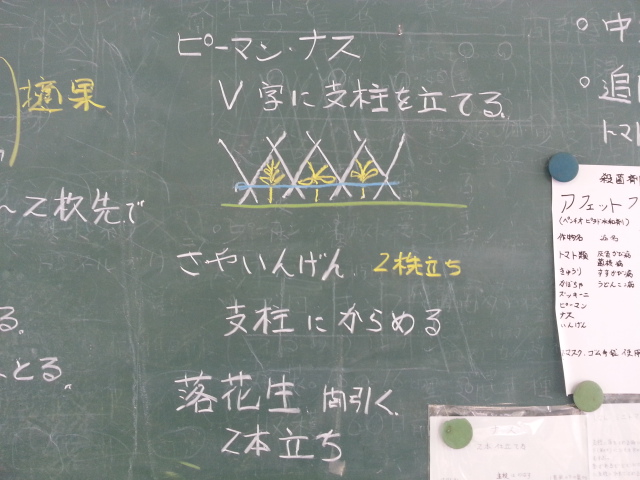 摘果
〜2枚先で
る。
とる。
ピーマン・ナス
V字に支柱を立てる。
さやいんげん 2株立ち
支柱にからめる
落花生 間引く。
2本立ち
。中
。追
トマト
殺菌剤
アフェットフ
作物名 病名
トマト類 灰色かび病
菌核病
きゅうり すすかび病
かぼちゃ うどんこ病
ズッキーニ
ピーマン
ナス
いんげん
マスク、ゴム手袋 使用